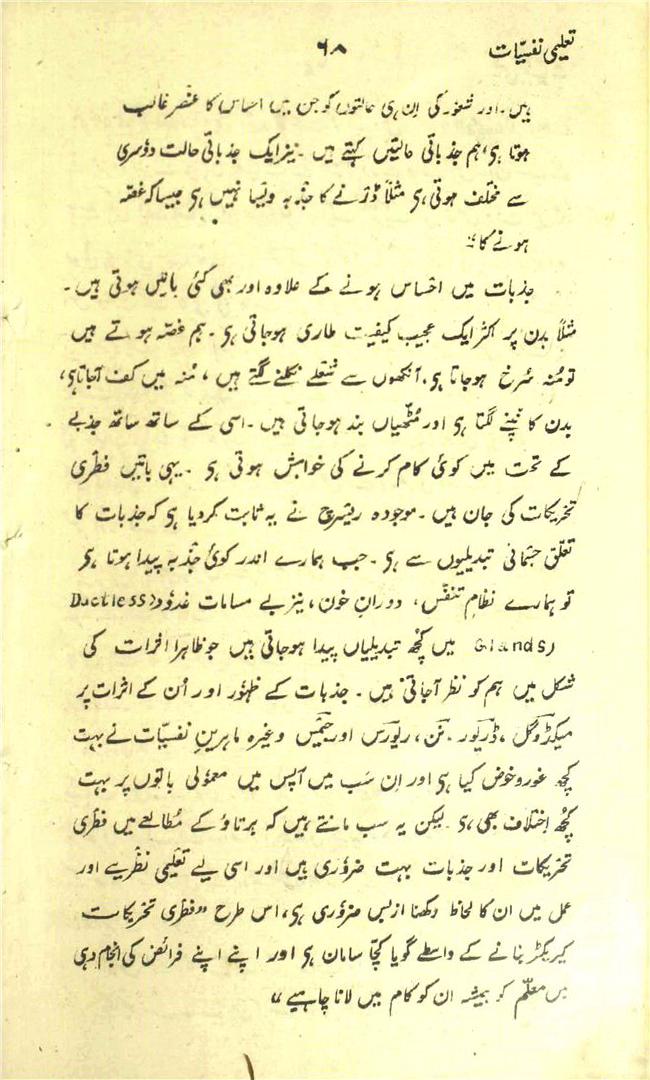 تعلیمی نفسیّات
۶۸
ہیں۔ اور شعور کی اِن ہی حالتوں کو جن میں احساس کا عنصر غالب
ہوتا ہی، ہم جذباتی حالتیں کہتے ہیں۔ نیز ایک جذباتی حالت دوٗسری
سے مختلف ہوتی ہی مثلاً ڈرنے کا جذبہ ویسا نہیں ہی جیسا کہ غصّہ
ہونے کا"
جذبات میں احساس ہونے کے علاوہ اور بھی کئی باتیں ہوتی ہیں۔
مثلاً بدن پر اکثر ایک عجیب کیفیت طاری ہوجاتی ہی۔ ہم غصّہ ہوتے ہیں
تو مُنہ سُرخ ہوجاتا ہی، آنکھوں سے شعلے نکلنے لگتے ہیں، مُنہ میں کف آجاتا ہی،
بدن کانپنے لگتا ہی اور مُٹھیاں بند ہوجاتی ہیں۔ اسی کے ساتھ ساتھ جذبے
کے تحت میں کوئی کام کرنے کی خواہش ہوتی ہی۔ یہی باتیں فطری
تحریکات کی جان ہیں۔ موجودہ ریسرچ نے یہ ثابت کردیا ہی کہ جذبات کا
تعلّق جسمانی تبدیلیوں سے ہی۔ جب ہمارے اندر کوئی جذبہ پیدا ہوتا ہی
تو ہمارے نظامِ تنفّس، دورانِ خون، نیز بے مسامات غدوٗد (Ductless
Glands) میں کچھ تبدیلیاں پیدا ہوجاتی ہیں جو ظاہرا اثرات کی
شکل میں ہم کو نظر آجاتی ہیں۔ جذبات کے ظہوٗر اور اُن کے اثرات پر
میکڈوگل، ڈریور، نَن، ریورس اور جیمس وغیرہ ماہرینِ نفسیّات نے بہت
کچھ غور و خوض کیا ہی اور اِن سب میں آپس میں معمولی باتوں پر بہت
کچھ اختلاف بھی ہی۔ لیکن یہ سب مانتے ہیں کہ برتاؤ کے مُطالعے میں فطری
تحریکات اور جذبات بہت ضروٗری ہیں اور اسی لیے تعلیمی نظریے اور
عمل میں ان کا لحاظ رکھنا ازبس ضروٗری ہی، اس طرح "فطری تحریکات
کیریکٹر بنانے کے واسطے گویا کچّا سامان ہی اور اپنے اپنے فرائض کی انجام دہی
میں معلّم کو ہمیشہ ان کو کام میں لانا چاہیے"